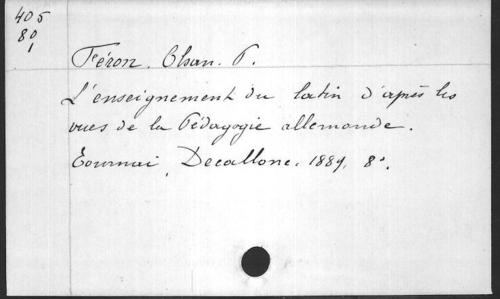 405
80
1
Féron. Chan. P.
L'enseignement du latin d'après les
vues de la Pédagogie allemande.
Tournai, Decallonne. 1889, 8°.